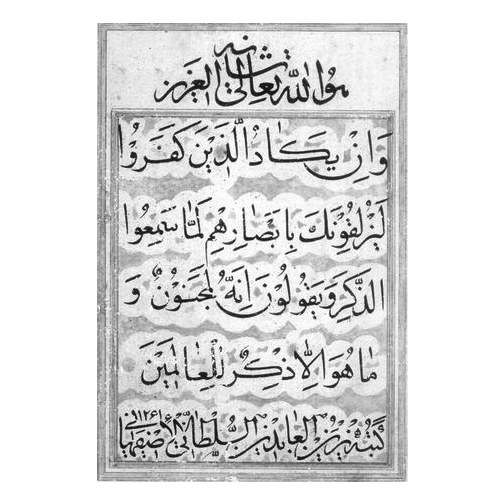 هو الله تعالى شانه العزيز
وَاِنْ يَكَادُ الَّذِينَ كَفَرُوا
لَيُزْلِقُونَكَ بِاَبْصَارِهِمْ لَمَّا سَمِعُوا
الذِّكْرَ وَيَقُولُونَ اِنَّهُ لَمَجْنُونٌ وَ
مَا هُوَ اِلَّا ذِكْرٌ لِلْعَالَمِينَ
كتبه زين العابدين السلطانى اصفهانى